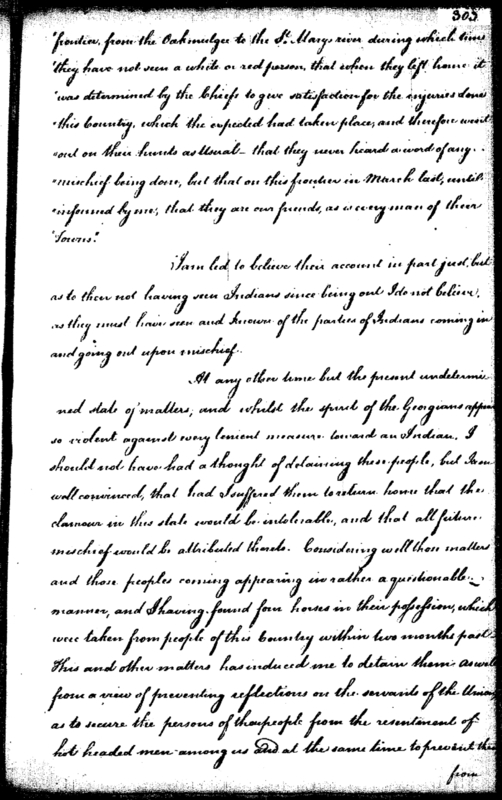 303
"frontier, from the Oakmulgee to the St. Marys river during which time
"they have not seen a white or red person, that when they left home it
"was determined by the Chiefs to give satisfaction for the injuries done
"this Country, which the expected had taken place, and therefore went
"out on their hunts as Usual – that they never heard a word of any
"mischief being done, but that on this frontier in March last, until
"informed by me, that they are our friends, as is every man of their
"Towns."
I am led to believe their account in part just, but
as to their not having seen Indians since being out I do not believe,
as they must have seen and known of the parties of Indians coming in
and going out upon mischief.
At any other time but the present undetermi-
ned state of matters, and whilst the spirit of the Georgians appear
so violent against every lenient measure toward an Indian, I
should not have had a thought of detaining these people, but I am
well convinced, that had I suffered them to return home that the
clamour in this state would be intolerable, and that all future
mischief would be attributed thereto. Considering well those matters
and those peoples coming appearing in rather a questionable
manner, and I having found four horses in their possession, which
were taken from people of this Country within two months past
This and other matters has induced me to detain them as well
from a view of preventing reflections on the servants of the Union,
as to secure the persons of those people from the resentment of
hot headed men among us and at the same time to prevent this
from